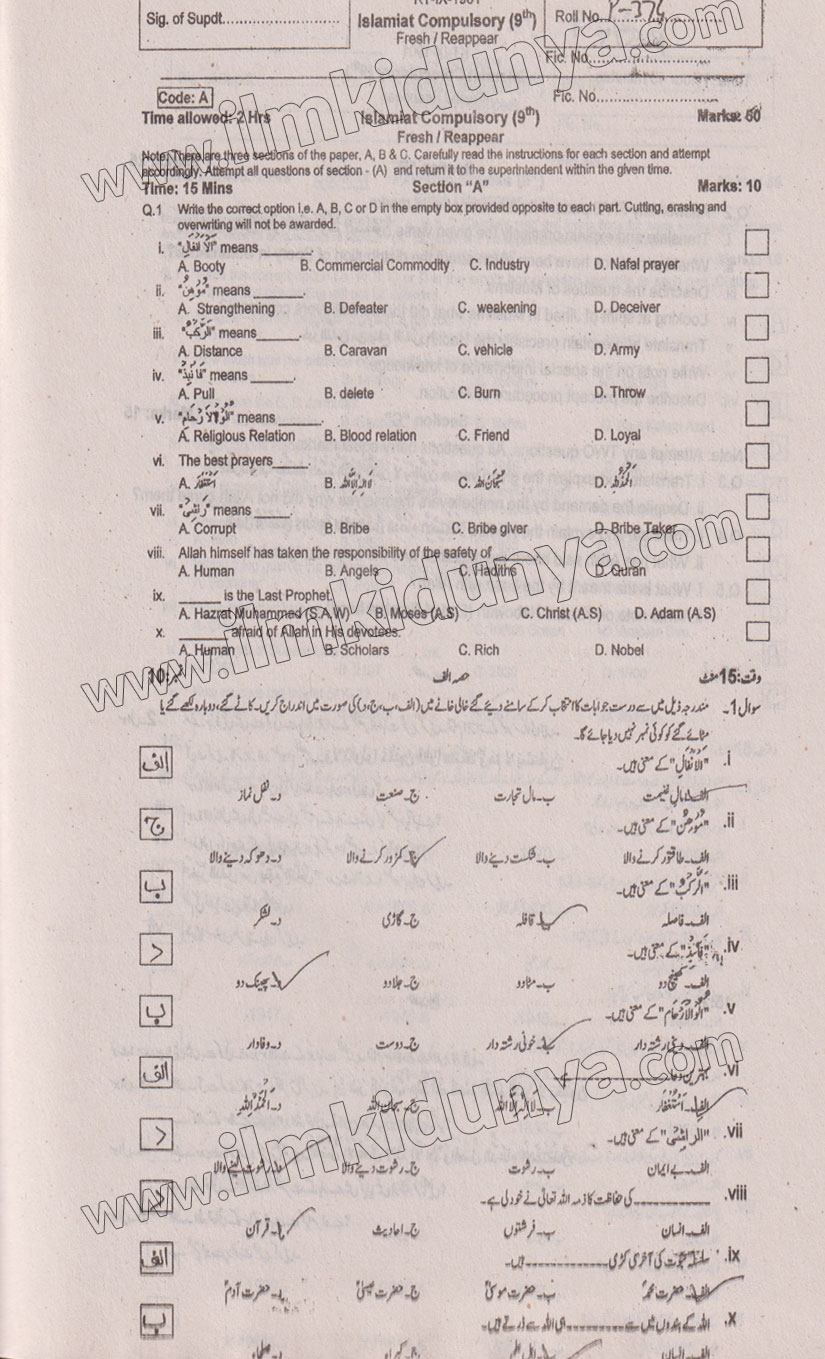 RT-IX-1901
Sig. of Supdt.
Islamiat Compulsory (9th)
Fresh / Reappear
Roll No.
Fic. No.
Code: A
Fic. No.
Time allowed: 2 Hrs
Islamiat Compulsory (9th)
Marks: 50
Fresh / Reappear
Note: There are three sections of the paper, A, B & C. Carefully read the instructions for each section and attempt
accordingly. Attempt all questions of section - (A) and return it to the superintendent within the given time.
Time: 15 Mins Section "A" Marks: 10
Q.1 Write the correct option i.e. A, B, C or D in the empty box provided opposite to each part. Cutting, erasing and
overwriting will not be awarded.
i. "اَلْاَنْفَالِ" means ______.
A. Booty B. Commercial Commodity C. Industry D. Nafal prayer
ii. "مُوْهِنُ" means ______.
A. Strengthening B. Defeater C. weakening D. Deceiver
iii. "اَلرَّكْبُ" means______.
A. Distance B. Caravan C. vehicle D. Army
iv. "فَانْبِذْ" means ______.
A. Pull B. delete C. Burn D. Throw
v. "اُولُوا الْاَرْحَامِ" means ______.
A. Religious Relation B. Blood relation C. Friend D. Loyal
vi. The best prayers______.
A. اَسْتَغْفَار B. لَا اِلٰهَ اِلَّا اللّٰه C. سُبْحَانَ اللّٰه D. اَلْحَمْدُ لِلّٰهِ
vii. "رَاشِيْ" means ______.
A. Corrupt B. Bribe C. Bribe giver D. Bribe Taker
viii. Allah himself has taken the responsibility of the safety of ______
A. Human B. Angels C. Hadiths D. Quran
ix. ______ is the Last Prophet.
A. Hazrat Muhammed (S.A.W) B. Moses (A.S) C. Christ (A.S) D. Adam (A.S)
x. ______ afraid of Allah in His devotees.
A. Human B. Scholars C. Rich D. Nobel
وقت: 15 منٹ حصہ الف نمبر: 10
سوال 1۔ مندرجہ ذیل میں سے درست جوابات کا انتخاب کر کے سامنے دیئے گئے خالی خانے میں (الف، ب، ج، د) کی صورت میں اندراج کریں۔ کاٹے گئے، دوبارہ لکھے گئے یا
مٹائے گئے کو کوئی نمبر نہیں دیا جائے گا۔
i. "اَلْاَنْفَالِ" کے معنی ہیں۔ الف
الف۔ مال غنیمت ب۔ مال تجارت ج۔ صنعت د۔ نفل نماز
ii. "مُوْهِنُ" کے معنی ہیں۔ ج
الف۔ طاقتور کرنے والا ب۔ شکست دینے والا ج۔ کمزور کرنے والا د۔ دھوکہ دینے والا
iii. "اَلرَّكْبُ" کے معنی ہیں۔ ب
الف۔ فاصلہ ب۔ قافلہ ج۔ گاڑی د۔ لشکر
iv. "فَانْبِذْ" کے معنی ہیں۔ د
الف۔ کھینچ دو ب۔ مٹا دو ج۔ جلا دو د۔ پھینک دو
v. "اُولُوا الْاَرْحَام" کے معنی ہیں۔ ب
الف۔ دینی رشتہ دار ب۔ خونی رشتہ دار ج۔ دوست د۔ وفادار
vi. بہترین دعا ______ ہے۔ الف
الف۔ اَسْتَغْفَار ب۔ لَا اِلٰهَ اِلَّا اللّٰه ج۔ سبحان اللہ د۔ اَلْحَمْدُ لِلّٰهِ
vii. "الراشِيْ" کے معنی ہیں۔ د
الف۔ بے ایمان ب۔ رشوت ج۔ رشوت دینے والا د۔ رشوت لینے والا
viii. ______ کی حفاظت کا ذمہ اللہ تعالیٰ نے خود لی ہے۔ د
الف۔ انسان ب۔ فرشتوں ج۔ احادیث د۔ قرآن
ix. سلسلہ نبوت کی آخری کڑی ______ ہیں۔ الف
الف۔ حضرت محمدؐ ب۔ حضرت موسیٰؑ ج۔ حضرت عیسیٰؑ د۔ حضرت آدمؑ
x. اللہ کے بندوں میں سے ______ ہی اللہ سے ڈرتے ہیں۔ ب
الف۔ انسان
www.ilmkidunya.com
www.ilmkidunya.com
www.ilmkidunya.com
www.ilmkidunya.com